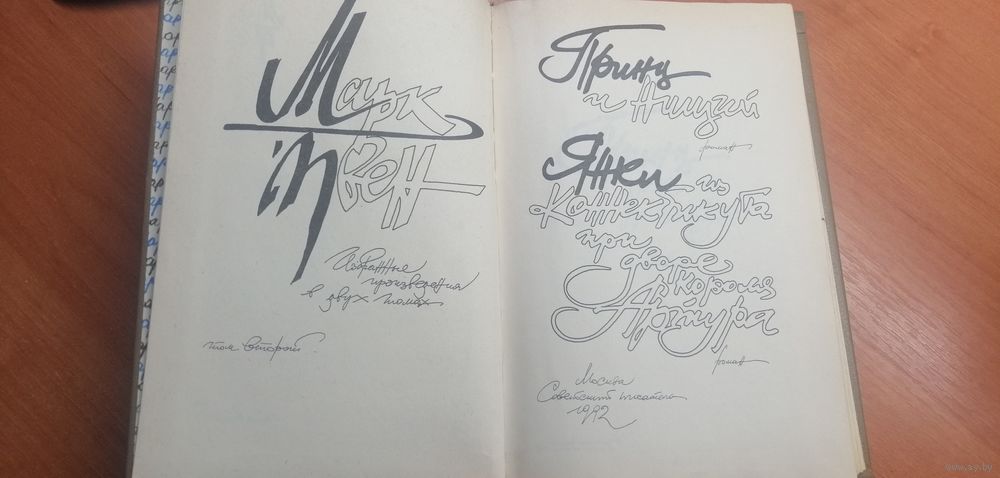 Марк
Твен
Избранные
произведения
в двух томах
том второй
Принц
и Нищий
роман
Янки из
Коннектикута
при
дворе
короля
Артура
роман
Москва
Советский писатель
1992
www.ay.by